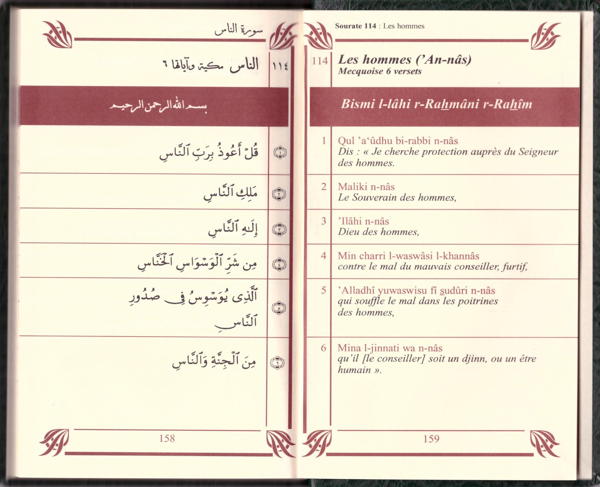 سورة الناس
١١٤ الناس مكية وآياتها ٦
بسم الله الرحمن الرحيم
قُلْ أَعُوذُ بِرَبِّ ٱلنَّاسِ ١
مَلِكِ ٱلنَّاسِ ٢
إِلَـٰهِ ٱلنَّاسِ ٣
مِن شَرِّ ٱلْوَسْوَاسِ ٱلْخَنَّاسِ ٤
ٱلَّذِى يُوَسْوِسُ فِى صُدُورِ
ٱلنَّاسِ ٥
مِنَ ٱلْجِنَّةِ وَٱلنَّاسِ ٦
158
Sourate 114 : Les hommes
114 Les hommes (’An-nâs)
Mecquoise 6 versets
Bismi l-lâhi r-Raẖmâni r-Raẖîm
1 Qul ’a‘ûdhu bi-rabbi n-nâs
Dis : « Je cherche protection auprès du Seigneur
des hommes.
2 Maliki n-nâs
Le Souverain des hommes,
3 ’Ilâhi n-nâs
Dieu des hommes,
4 Min charri l-waswâsi l-khannâs
contre le mal du mauvais conseiller, furtif,
5 ’Alladhî yuwaswisu fî s̱udûri n-nâs
qui souffle le mal dans les poitrines
des hommes,
6 Mina l-jinnati wa n-nâs
qu’il [le conseiller] soit un djinn, ou un être
humain ».
159